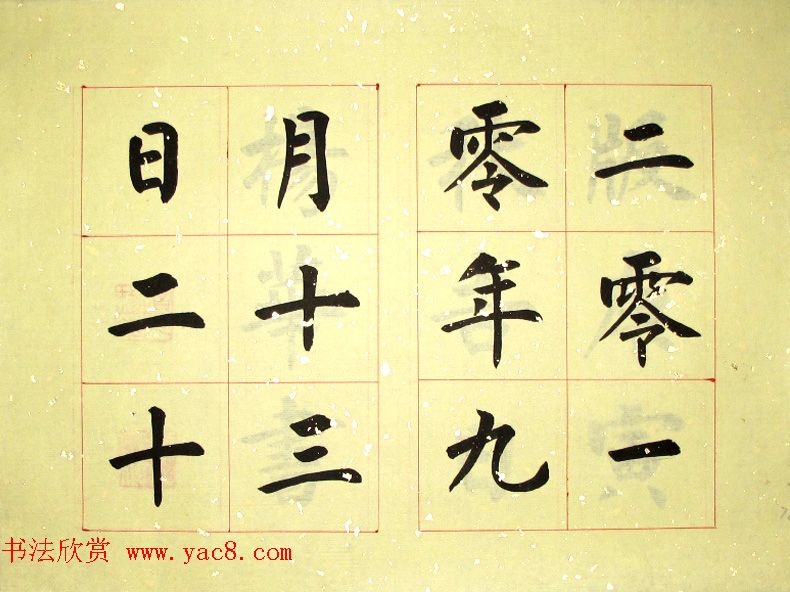 二零一
零年九
月十三
日二十
书法欣赏 www.yac8.com